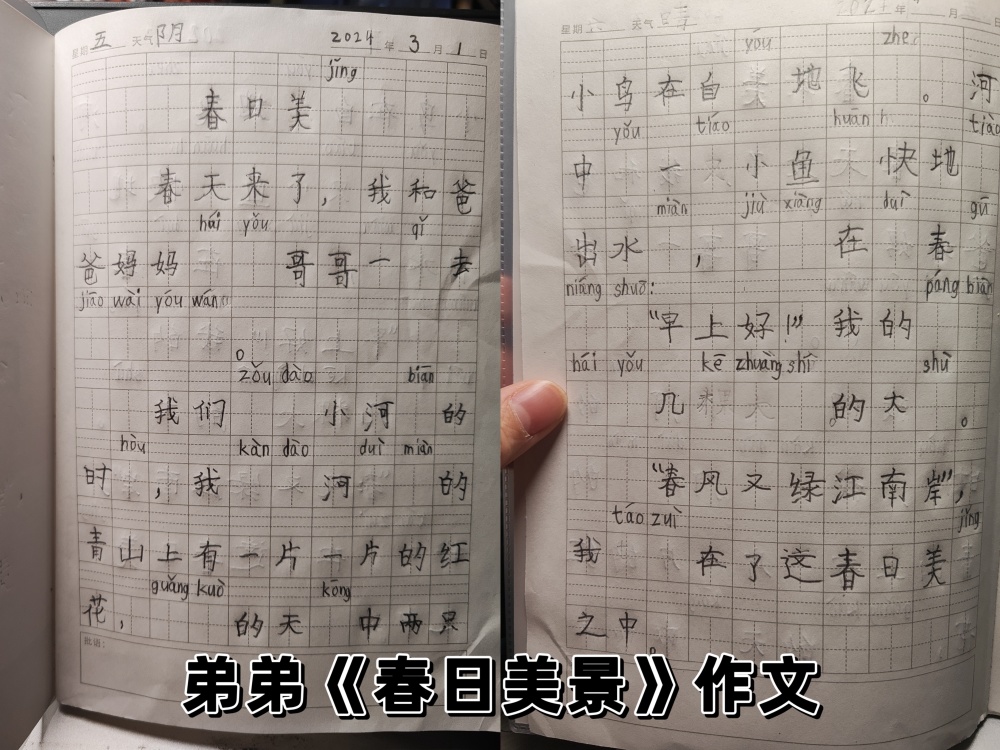 星期 五 天气 阴 2024 年 3 月 1 日
jǐng
春日美
春天来了，我和爸
hái yǒu qǐ
爸妈妈 哥哥一 去
jiāo wài yóu wán
。
zǒu dào biān
我们 小河 的
hòu kàn dào duì miàn
时 ，我 河 的
青山上有一片一片的红
guǎng kuò kōng
花， 的天 中两只
批语：
星期 天气 年 月 日
yóu zhe
小鸟在自 地飞 。河
yǒu tiáo huān tiào
中 一 小鱼 快地
miàn jiù xiàng duì gū
出水 ， 在 春
niáng shuō: páng biān
“早上好！” 我的
hái yǒu kē zhuàng shí shù
几 的大 。
“春风又绿江南岸”，
táo zuì jǐng
我 在了这春日美
之中 。
弟弟《春日美景》作文